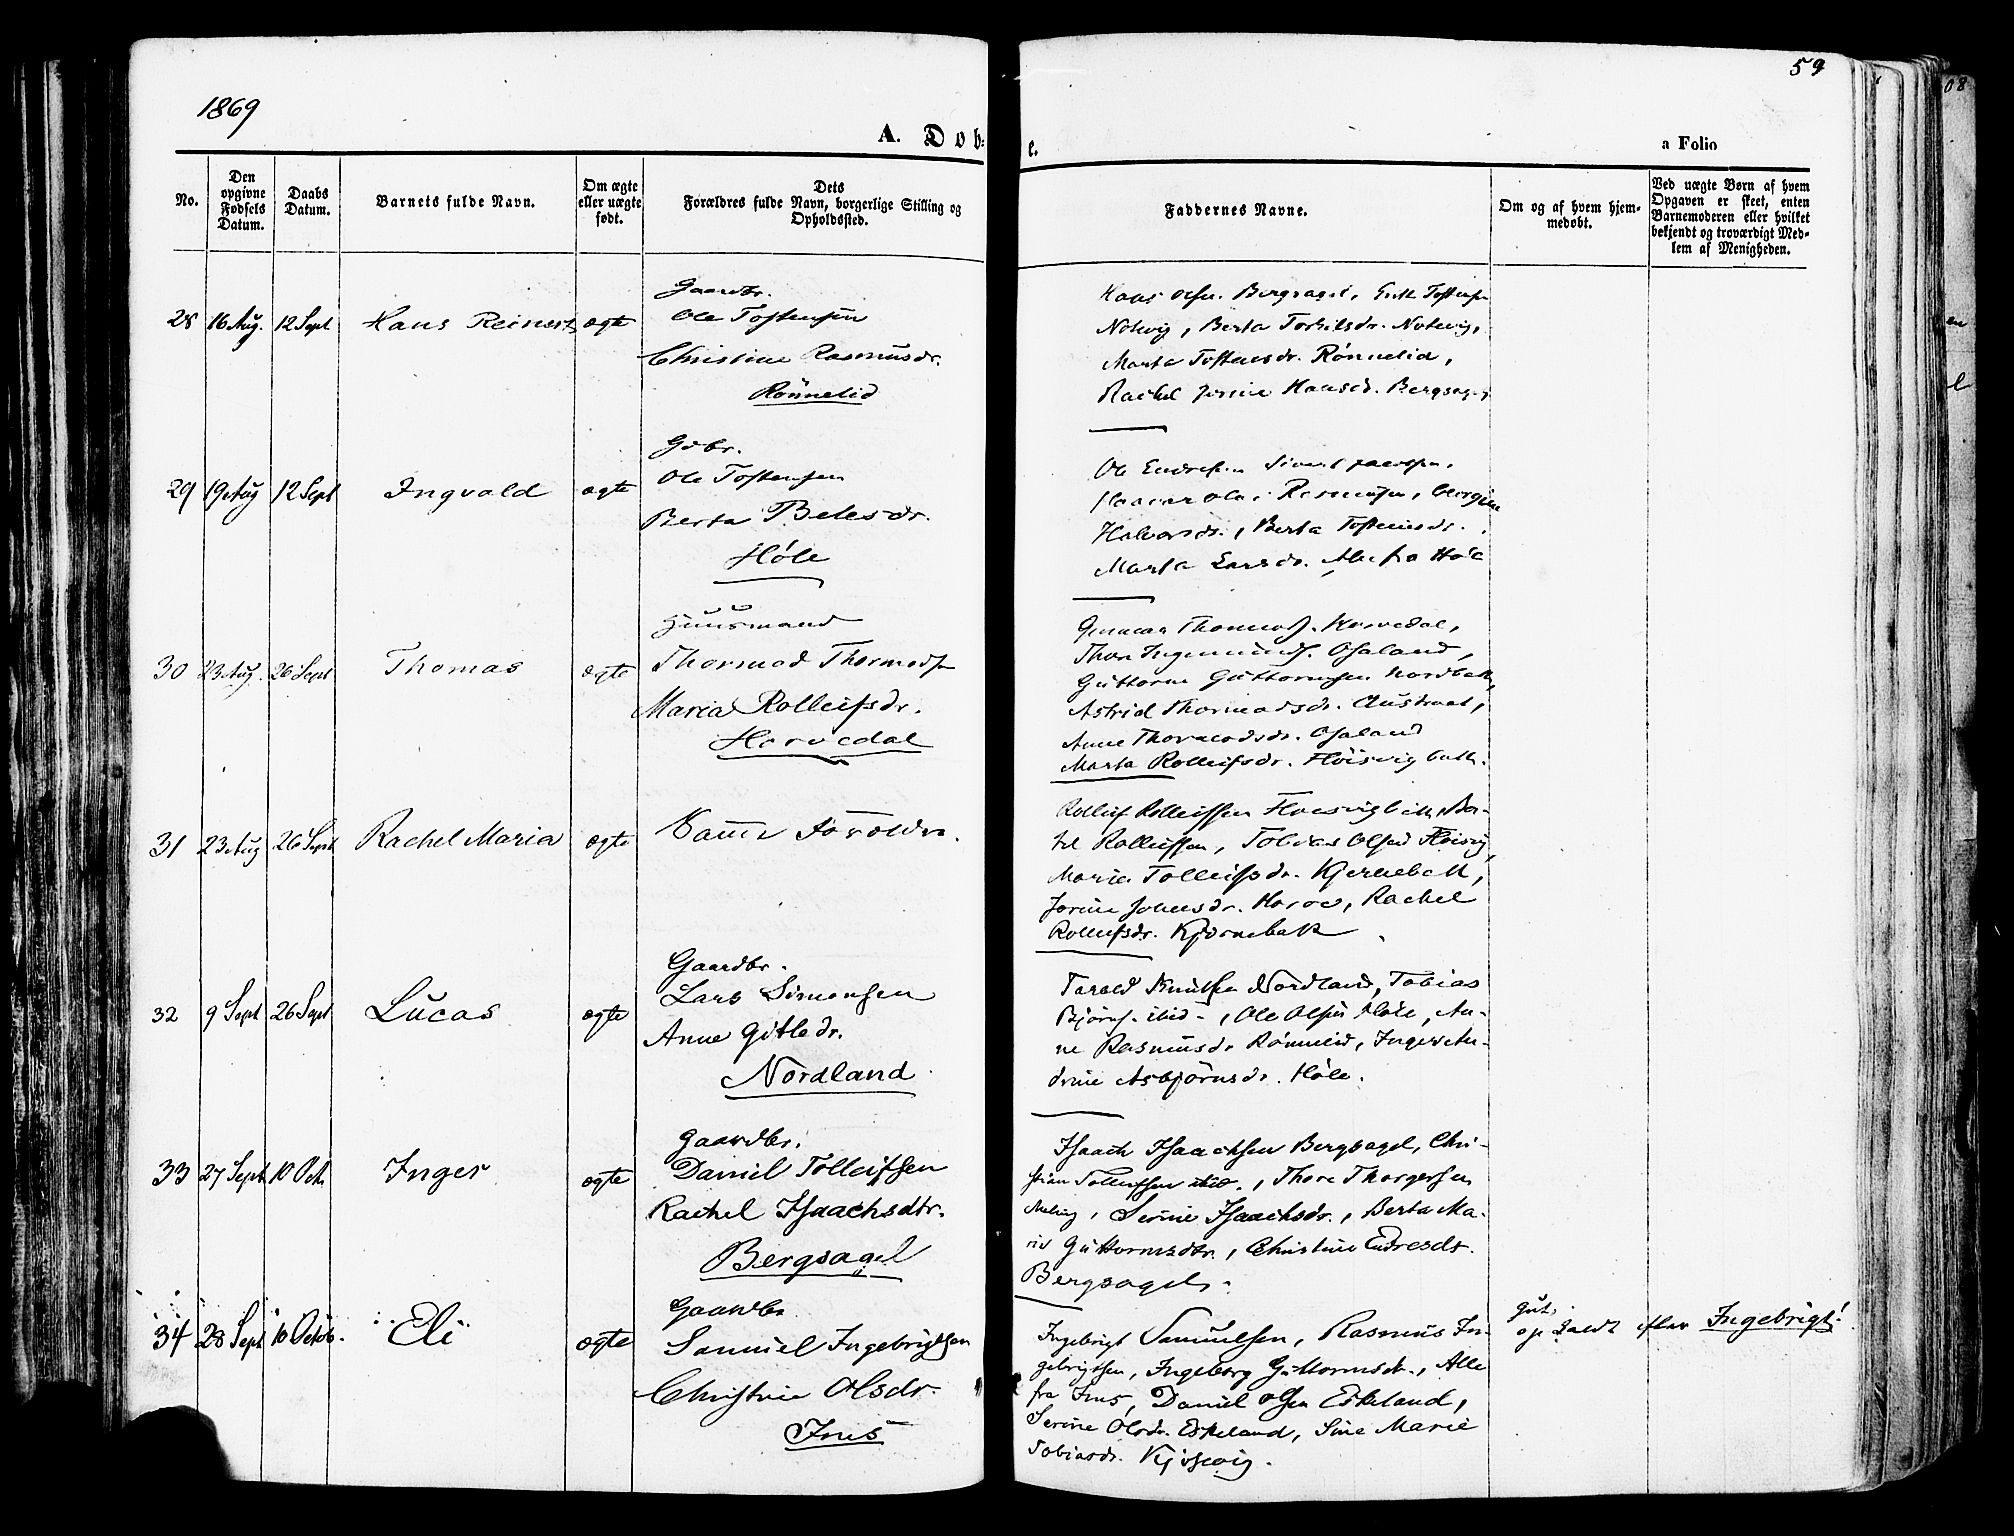 1869
59
A. Dob-
e.
a Folio
No.
Den opgivne Fødsels Datum.
Daabs Datum.
Barnets fulde Navn.
Om ægte eller uægte født.
Dets Forældres fulde Navn, borgerlige Stilling og Opholdssted.
Faddernes Navne.
Om og af hvem hjemmedøbt.
Ved uægte Børn af hvem Opgaven er skeet, enten Barnemoderen eller hvilket bekjendt og troværdigt Medlem af Menigheden.
28 16 Aug. 12 Sept Hans Reinert ægte
Gaardbr.
Ole Tostensen
Christine Rasmusdr.
Rönnelid
Hans Olsen Bergsagel, Erik Tostensen
Notvig, Berta Torkilsdr. Notvig,
Marta Tostensdr. Rønnelid,
Rachel Hansd. Bergsagel
29 19 Aug 12 Sept Ingvald ægte
Gdbr.
Ole Tostensen
Berta Belesdr.
Høle
Ole Endresen
Rasmussen,
Halvorsdr., Berta Tostensdr.
Marta Larsdr. Alle fra Høle
30 23 Aug. 26 Sept Thomas ægte
Huusmand
Thormod Thormods.
Maria Rolleifsdr.
Horvedal
Gunnar
Thor Ingemunds. Osaland,
Guttorm Guttormsen Nordbak,
Astrid Thormodsdr. Austraat,
Anne Thormodsdr. Osaland
Marta Rolleifsdr. Fløisvig
31 23 Aug 26 Sept Rachel Maria ægte
Samme Forældre.
Rolleif Rolleifsen
Rolleifsen, Tobias Olsen Fløisvig,
Maria Tolleifsdr. Kjernebak,
Jorine Johnsdr. Rachel
Rolleifsdr. Kjørnebak
32 9 Sept 26 Sept Lucas ægte
Gaardbr.
Lars Simonsen
Anne Gitledr.
Nordland.
Tarald Knutsen Nordland, Tobias
Bjørns. ibid., Ole Olsen Høle, An-
ne Rasmusdr Rønnelid, Inger An-
drine Asbjørnsdr. Høle.
33 27 Sept 10 Oct. Inger ægte
Gaardbr.
Daniel Tolleifsen
Rachel Isaachsdtr.
Bergsagel
Isaach Isaachsen Bergsagel, Chri-
stian Tolleifsen ibid., Thore Thorgersen
Meling, Serine Isaachsdr., Berta Ma-
ria Guttormsdtr., Christine Endresdr.
Bergsagel.
34 28 Sept 10 Octob. Eli ægte
Gaardbr
Samuel Ingebrigtsen
Christine Olsdr.
Imis
Ingebrigt Samuelsen, Rasmus In-
gebrigtsen, Ingeborg Guttormsdr., Alle
fra Ims, Daniel Olsen Eskeland,
Serine Olsdr. Eskeland, Sine Marie
Tobiasdr. Kjosevig.
Gut,
opkaldt efter Ingebrigt!